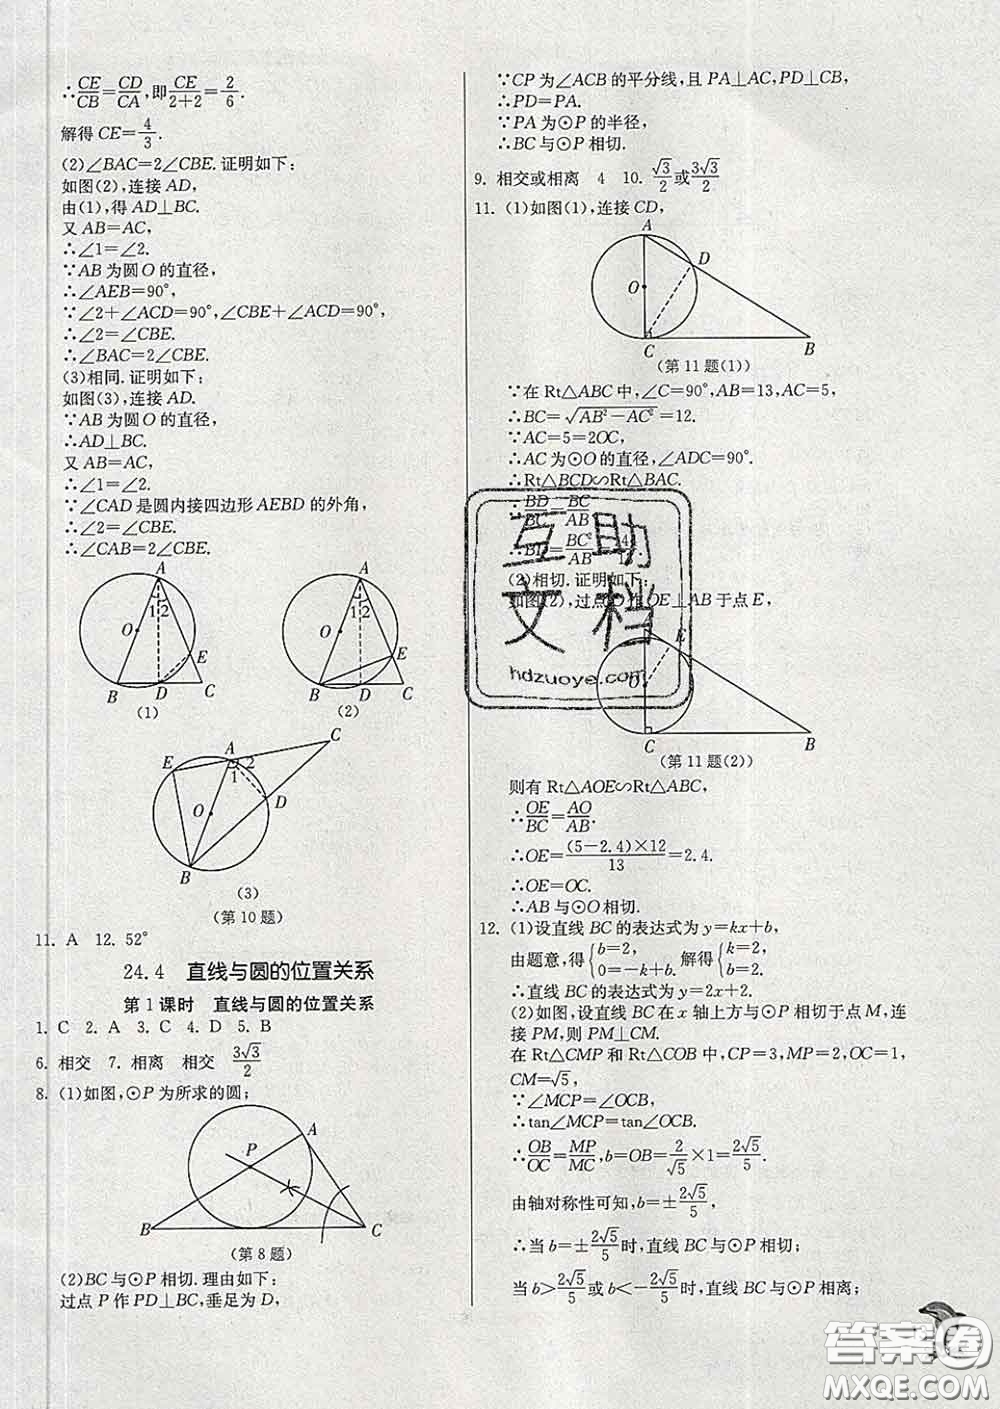 ∴CE/CB=CD/CA,即CE/(2+2)=2/6.
解得CE=4/3.
(2)∠BAC=2∠CBE.证明如下:
如图(2),连接AD,
由(1),得AD⊥BC.
又AB=AC,
∴∠1=∠2.
∵AB为圆O的直径,
∴∠AEB=90°,
∵∠2+∠ACD=90°,∠CBE+∠ACD=90°,
∴∠2=∠CBE.
∴∠BAC=2∠CBE.
(3)相同.证明如下:
如图(3),连接AD.
∵AB为圆O的直径,
∴AD⊥BC.
又AB=AC,
∴∠1=∠2.
∵∠CAD是圆内接四边形AEBD的外角,
∴∠2=∠CBE.
∴∠CAB=2∠CBE.
A
1 2
O
E
B D C
(1)
A
1 2
O
E
B D C
(2)
C
A
E
2
1
O
D
B
(3)
(第10题)
11. A 12. 52°
24.4 直线与圆的位置关系
第1课时 直线与圆的位置关系
1. C 2. A 3. C 4. D 5. B
6. 相交 7. 相离 相交 3√3/2
8. (1)如图,⊙P为所求的圆;
A
P
B C
(第8题)
(2)BC与⊙P相切.理由如下:
过点P作PD⊥BC,垂足为D,
∵CP为∠ACB的平分线,且PA⊥AC,PD⊥CB,
∴PD=PA.
∵PA为⊙P的半径,
∴BC与⊙P相切.
9. 相交或相离 4 10. √3/2或3√3/2
11. (1)如图(1),连接CD,
A
D
O
C B
(第11题(1))
∵在Rt△ABC中,∠C=90°,AB=13,AC=5,
∴BC=√(AB²-AC²)=12.
∵AC=5=2OC,
∴AC为⊙O的直径,∠ADC=90°.
∴Rt△BCD∽Rt△BAC.
∴BD/BC=BC/AB
∴BD=BC²/AB
(2)相切.证明如下:
如图(2),过点O作OE⊥AB于点E,
互助文档
hdzuoye.com
E
O
C B
(第11题(2))
则有Rt△AOE∽Rt△ABC,
∴OE/BC=AO/AB.
∴OE=(5-2.4)×12/13=2.4.
∴OE=OC.
∴AB与⊙O相切.
12. (1)设直线BC的表达式为y=kx+b,
由题意,得{b=2, 0=-k+b. 解得{k=2, b=2.
∴直线BC的表达式为y=2x+2.
(2)如图,设直线BC在x轴上方与⊙P相切于点M,连
接PM,则PM⊥CM.
在Rt△CMP和Rt△COB中,CP=3,MP=2,OC=1,
CM=√5,
∵∠MCP=∠OCB,
∴tan∠MCP=tan∠OCB.
∴OB/OC=MP/MC,b=OB=2/√5×1=2√5/5.
由轴对称性可知,b=±2√5/5.
∴当b=±2√5/5时,直线BC与⊙P相切;
当b>2√5/5或b<-2√5/5时,直线BC与⊙P相离;
答案圈
MXQE.COM